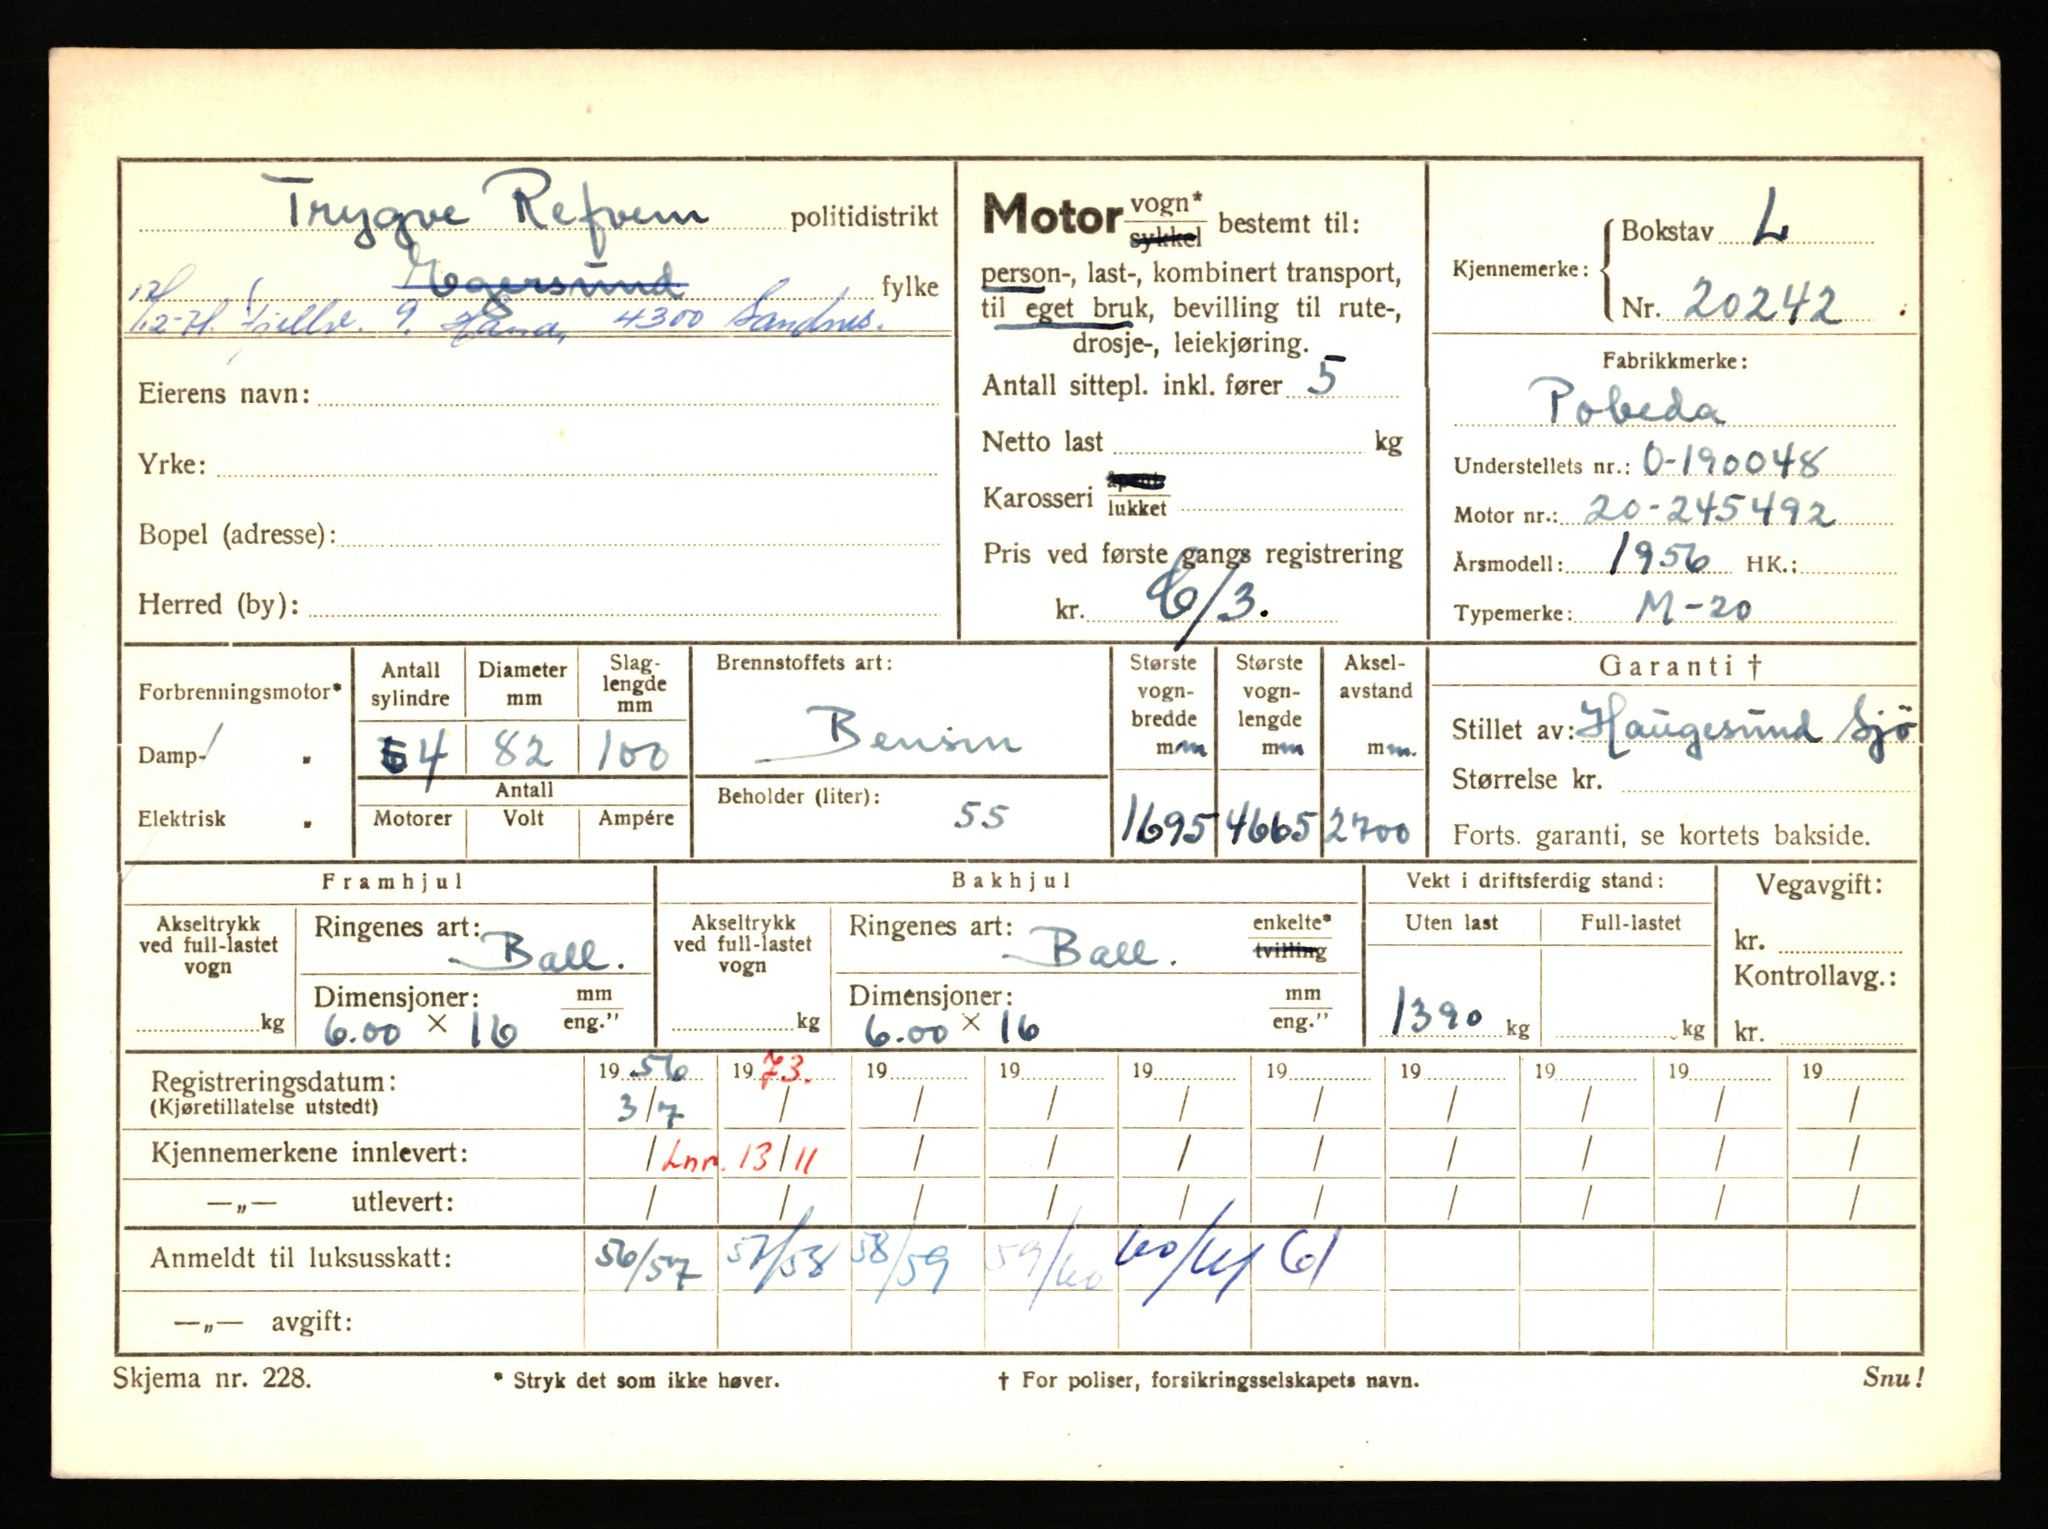 Trygve Refvem politidistrikt
Egersund fylke
12-71. Fjellv. 9. Hana, 4300 Sandnes.
Eierens navn:
Yrke:
Bopel (adresse):
Herred (by):
Motor vogn* sykkel bestemt til:
person-, last-, kombinert transport,
til eget bruk, bevilling til rute-,
drosje-, leiekjøring.
Antall sittepl. inkl. fører 5
Netto last kg
Karosseri åpent lukket
Pris ved første gangs registrering
kr. 6/3.
Kjennemerke: Bokstav L
Nr. 20242
Fabrikkmerke:
Pobeda
Understellets nr.: 0-190048
Motor nr.: 20-245492
Årsmodell: 1956 HK.:
Typemerke: M-20
Forbrenningsmotor*
Damp- "
Elektrisk "
Antall sylindre Diameter mm Slag-lengde mm
4 82 100
Antall
Motorer Volt Ampére
Brennstoffets art:
Bensin
Beholder (liter): 55
Største vogn-bredde mm Største vogn-lengde mm Aksel-avstand mm.
1695 4665 2700
Garanti †
Stillet av: Haugesund Sjö
Størrelse kr.
Forts. garanti, se kortets bakside.
Framhjul
Akseltrykk ved full-lastet vogn
kg
Ringenes art: Ball.
Dimensjoner: mm eng."
6.00 × 16
Bakhjul
Akseltrykk ved full-lastet vogn
kg
Ringenes art: Ball. enkelte* tvilling
Dimensjoner: mm eng."
6.00 × 16
Vekt i driftsferdig stand:
Uten last Full-lastet
1390 kg kg
Vegavgift:
kr.
Kontrollavg.:
kr.
Registreringsdatum: 19 56 19 73. 19 19 19 19 19 19 19 19
(Kjøretillatelse utstedt) 3/7 / / / / / / / / /
Kjennemerkene innlevert: / Lnr. 13/11 / / / / / / / /
—„— utlevert: / / / / / / / / / /
Anmeldt til luksusskatt: 56/57 57/58 58/59 59/60 60/61 61
—„— avgift:
Skjema nr. 228. * Stryk det som ikke høver. † For poliser, forsikringsselskapets navn. Snu!